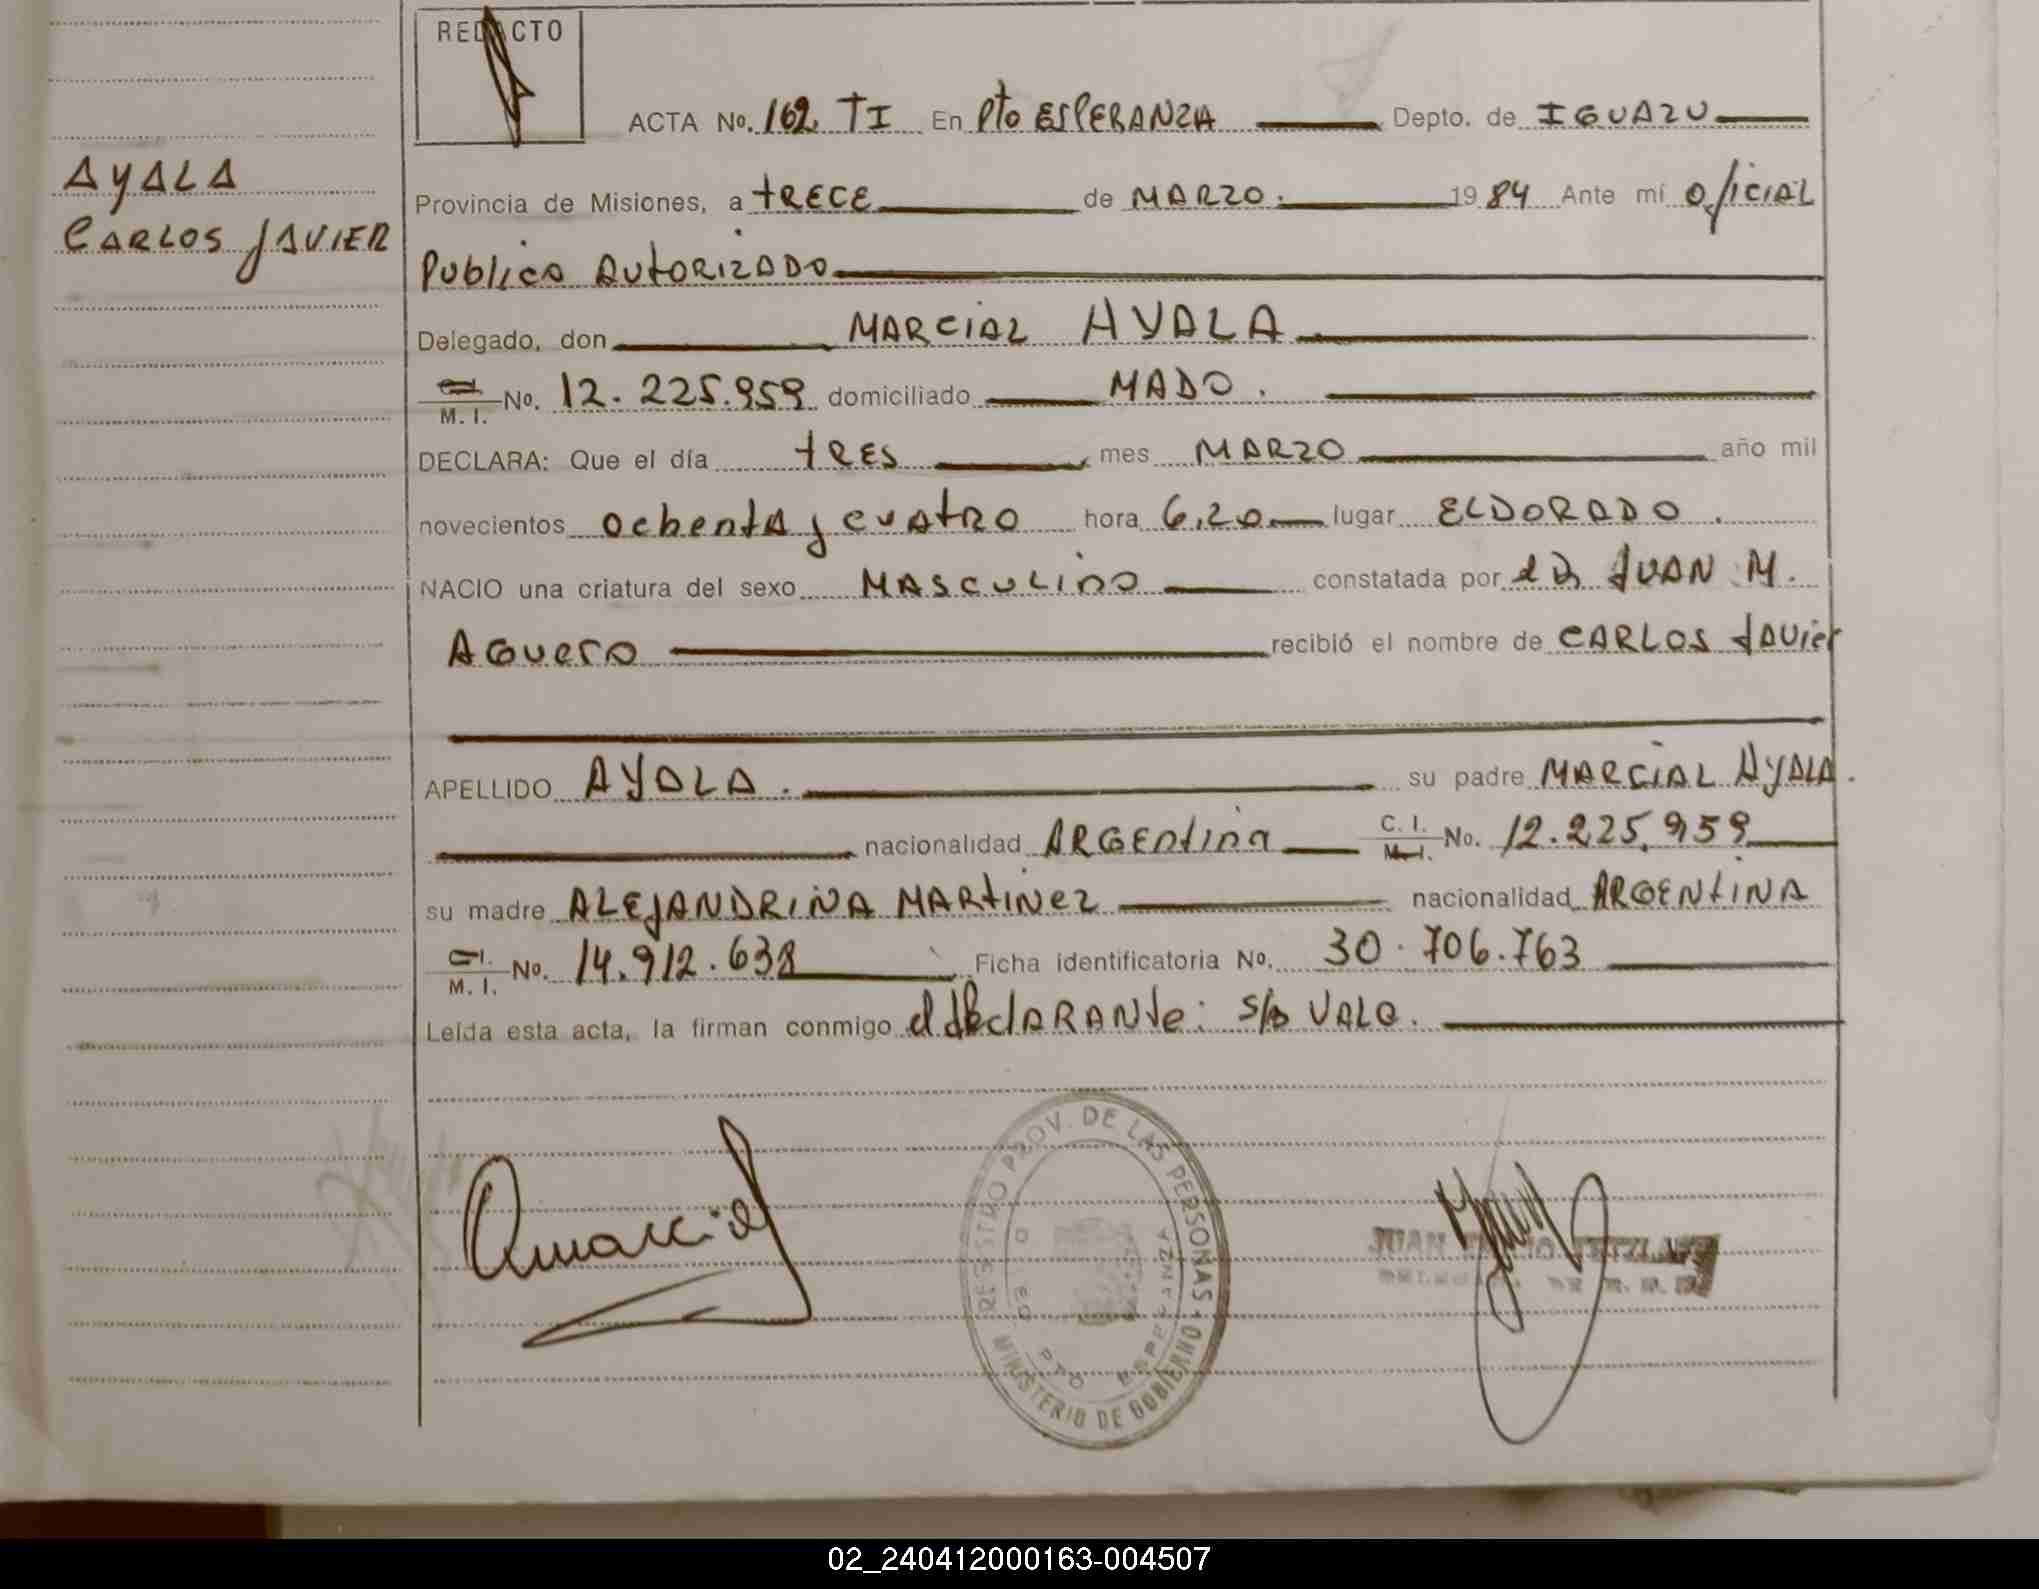 REDACTO
ACTA No. 162. TI En Pto ESPERANZA Depto. de IGUAZU
AYALA
CARLOS JAVIER
Provincia de Misiones, a tRECE de MARZO. 1984 Ante mí Oficial
Publico AutORIZADO
Delegado, don MARCIAL AYALA
C.I. M. I. No. 12.225.959 domiciliado MADO.
DECLARA: Que el día tRES mes MARZO año mil
novecientos ochentA y cuAtRO hora 6,20 lugar ELDORADO.
NACIO una criatura del sexo MASCULINO constatada por el Dr JUAN M.
AGUERO recibió el nombre de CARLOS JAVIER
APELLIDO AYALA. su padre MARCIAL AYALA.
nacionalidad ARGEntina C. I. M. I. No. 12.225.959
su madre ALEJANDRINA MARtINEZ nacionalidad ARGENtINA
C.I. M. I. No. 14.912.638 Ficha identificatoria No. 30.706.763
Leída esta acta, la firman conmigo el declARANte: s/b VALE.
REGISTRO PROV. DE LAS PERSONAS
MINISTERIO DE GOBIERNO
PTO ESPERANZA
JUAN
02_240412000163-004507